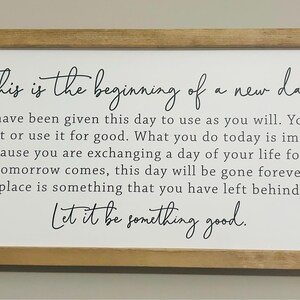 his is the beginning of a new da
have been given this day to use as you will. Yo
t or use it for good. What you do today is im
ause you are exchanging a day of your life fo
omorrow comes, this day will be gone foreve
place is something that you have left behind
Let it be something good.